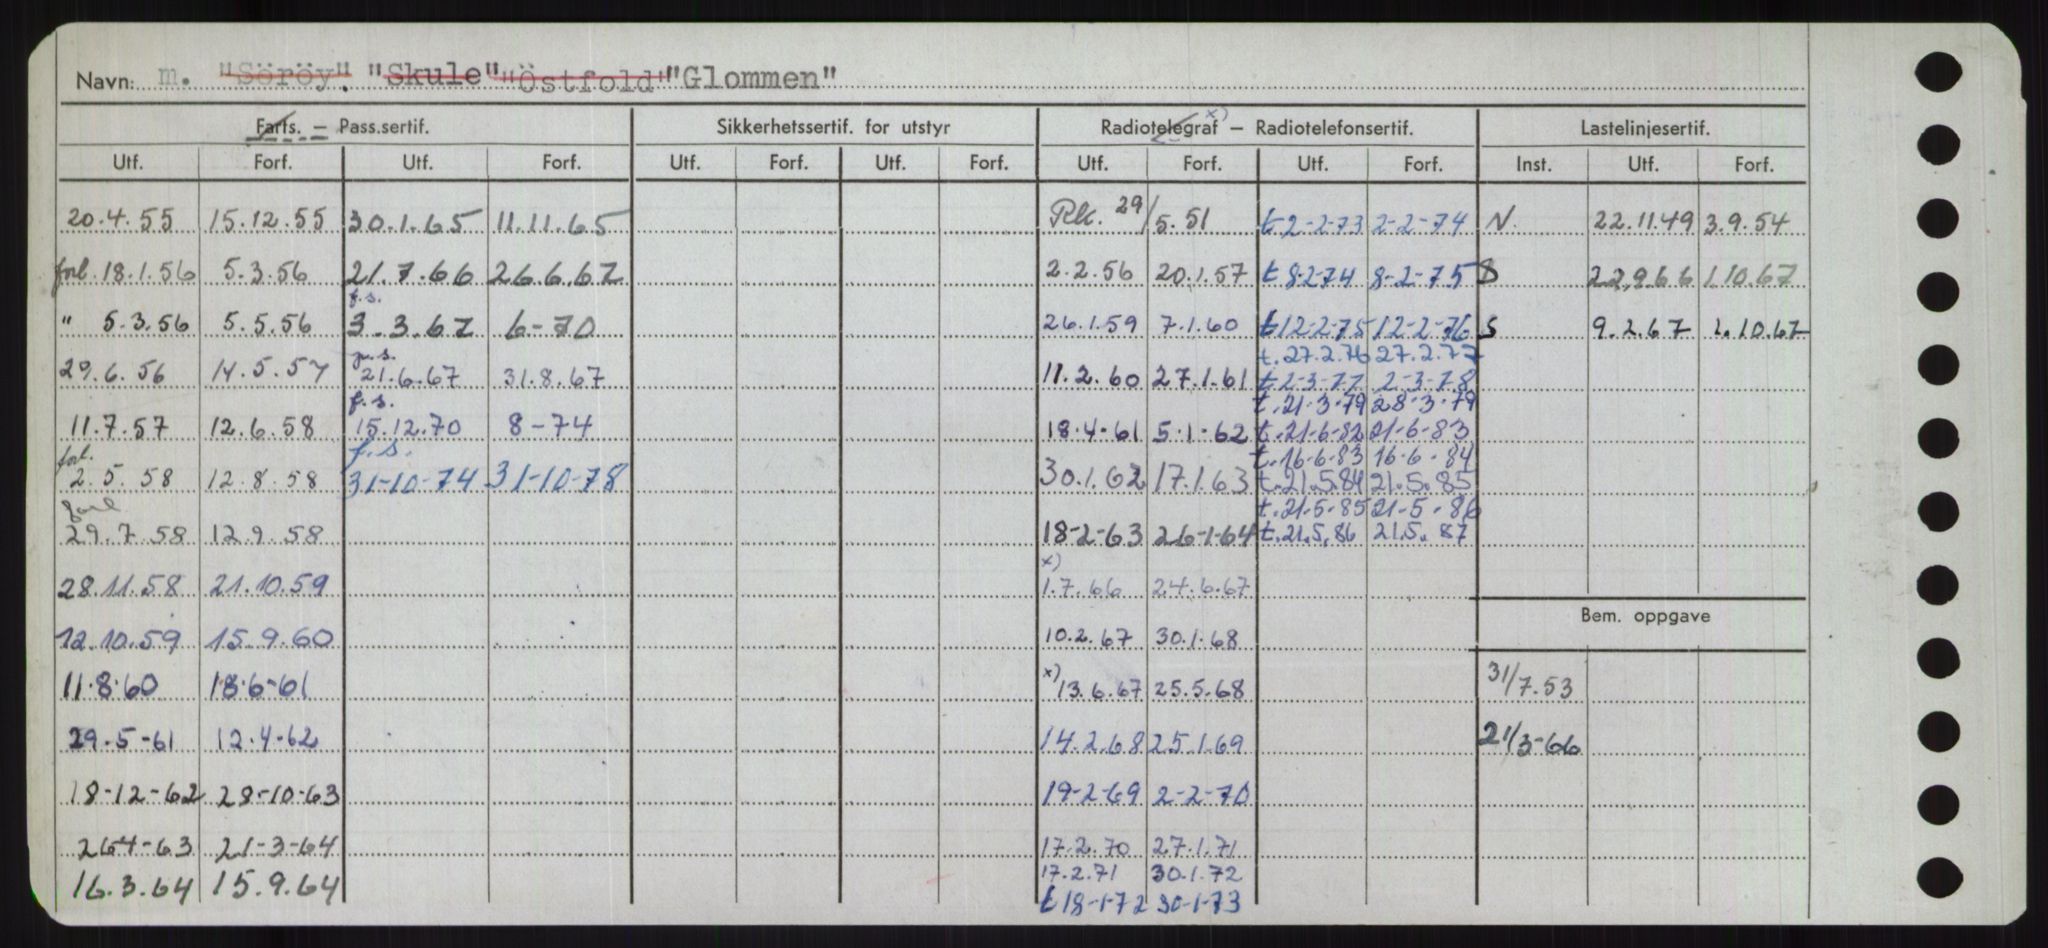 Navn: m. "Söröy". "Skule" "Östfold" "Glommen"
Farts. – Pass.sertif. Sikkerhetssertif. for utstyr Radiotelegraf x) – Radiotelefonsertif. Lastelinjesertif.
Utf. Forf. Utf. Forf. Utf. Forf. Utf. Forf. Utf. Forf. Utf. Forf. Inst. Utf. Forf.
20.4.55 15.12.55 30.1.65 11.11.65 Rk. 29/5.51 t 2-2-73 2-2-74 N. 22.11.49 3.9.54
forl. 18.1.56 5.3.56 21.7.66 26.6.67 2.2.56 20.1.57 t 8-2-74 8-2-75 B 22.9.66 1.10.67
f.s.
" 5.3.56 5.5.56 3.3.67 6-70 26.1.59 7.1.60 t 12-2-75 12-2-76 S 9.2.67 1.10.67
p.s. t. 27.2.76 27.2.77
29.6.56 14.5.57 21.6.67 31.8.67 11.2.60 27.1.61 t 2-3-77 2-3-78
f.s. t. 21-3-79 28-3-79
11.7.57 12.6.58 15.12.70 8-74 18.4.61 5.1-62 t. 21-6-82 21-6-83
forl. f.s. t. 16-6-83 16-6-84
2.5.58 12.8.58 31-10-74 31-10-78 30.1.62 17.1.63 t. 21.5.84 21.5.85
forl t. 21-5-85 21-5-86
29.7.58 12.9.58 18-2-63 26-1-64 t. 21.5.86 21.5.87
x)
28.11.58 21.10.59 1.7.66 24.6.67
Bem. oppgave
12.10.59 15.9.60 10.2.67 30.1.68
11.8.60 18.6-61 x) 13.6.67 25.5.68 31/7.53
29.5-61 12.4-62 14.2.68 25.1.69 21/3-66
18-12-62 28-10-63 19-2-69 2-2-70
264-63 21-3-64 17.2.70 27.1.71
16.3.64 15.9.64 17.2.71 30.1.72
t 18-1-72 30-1-73